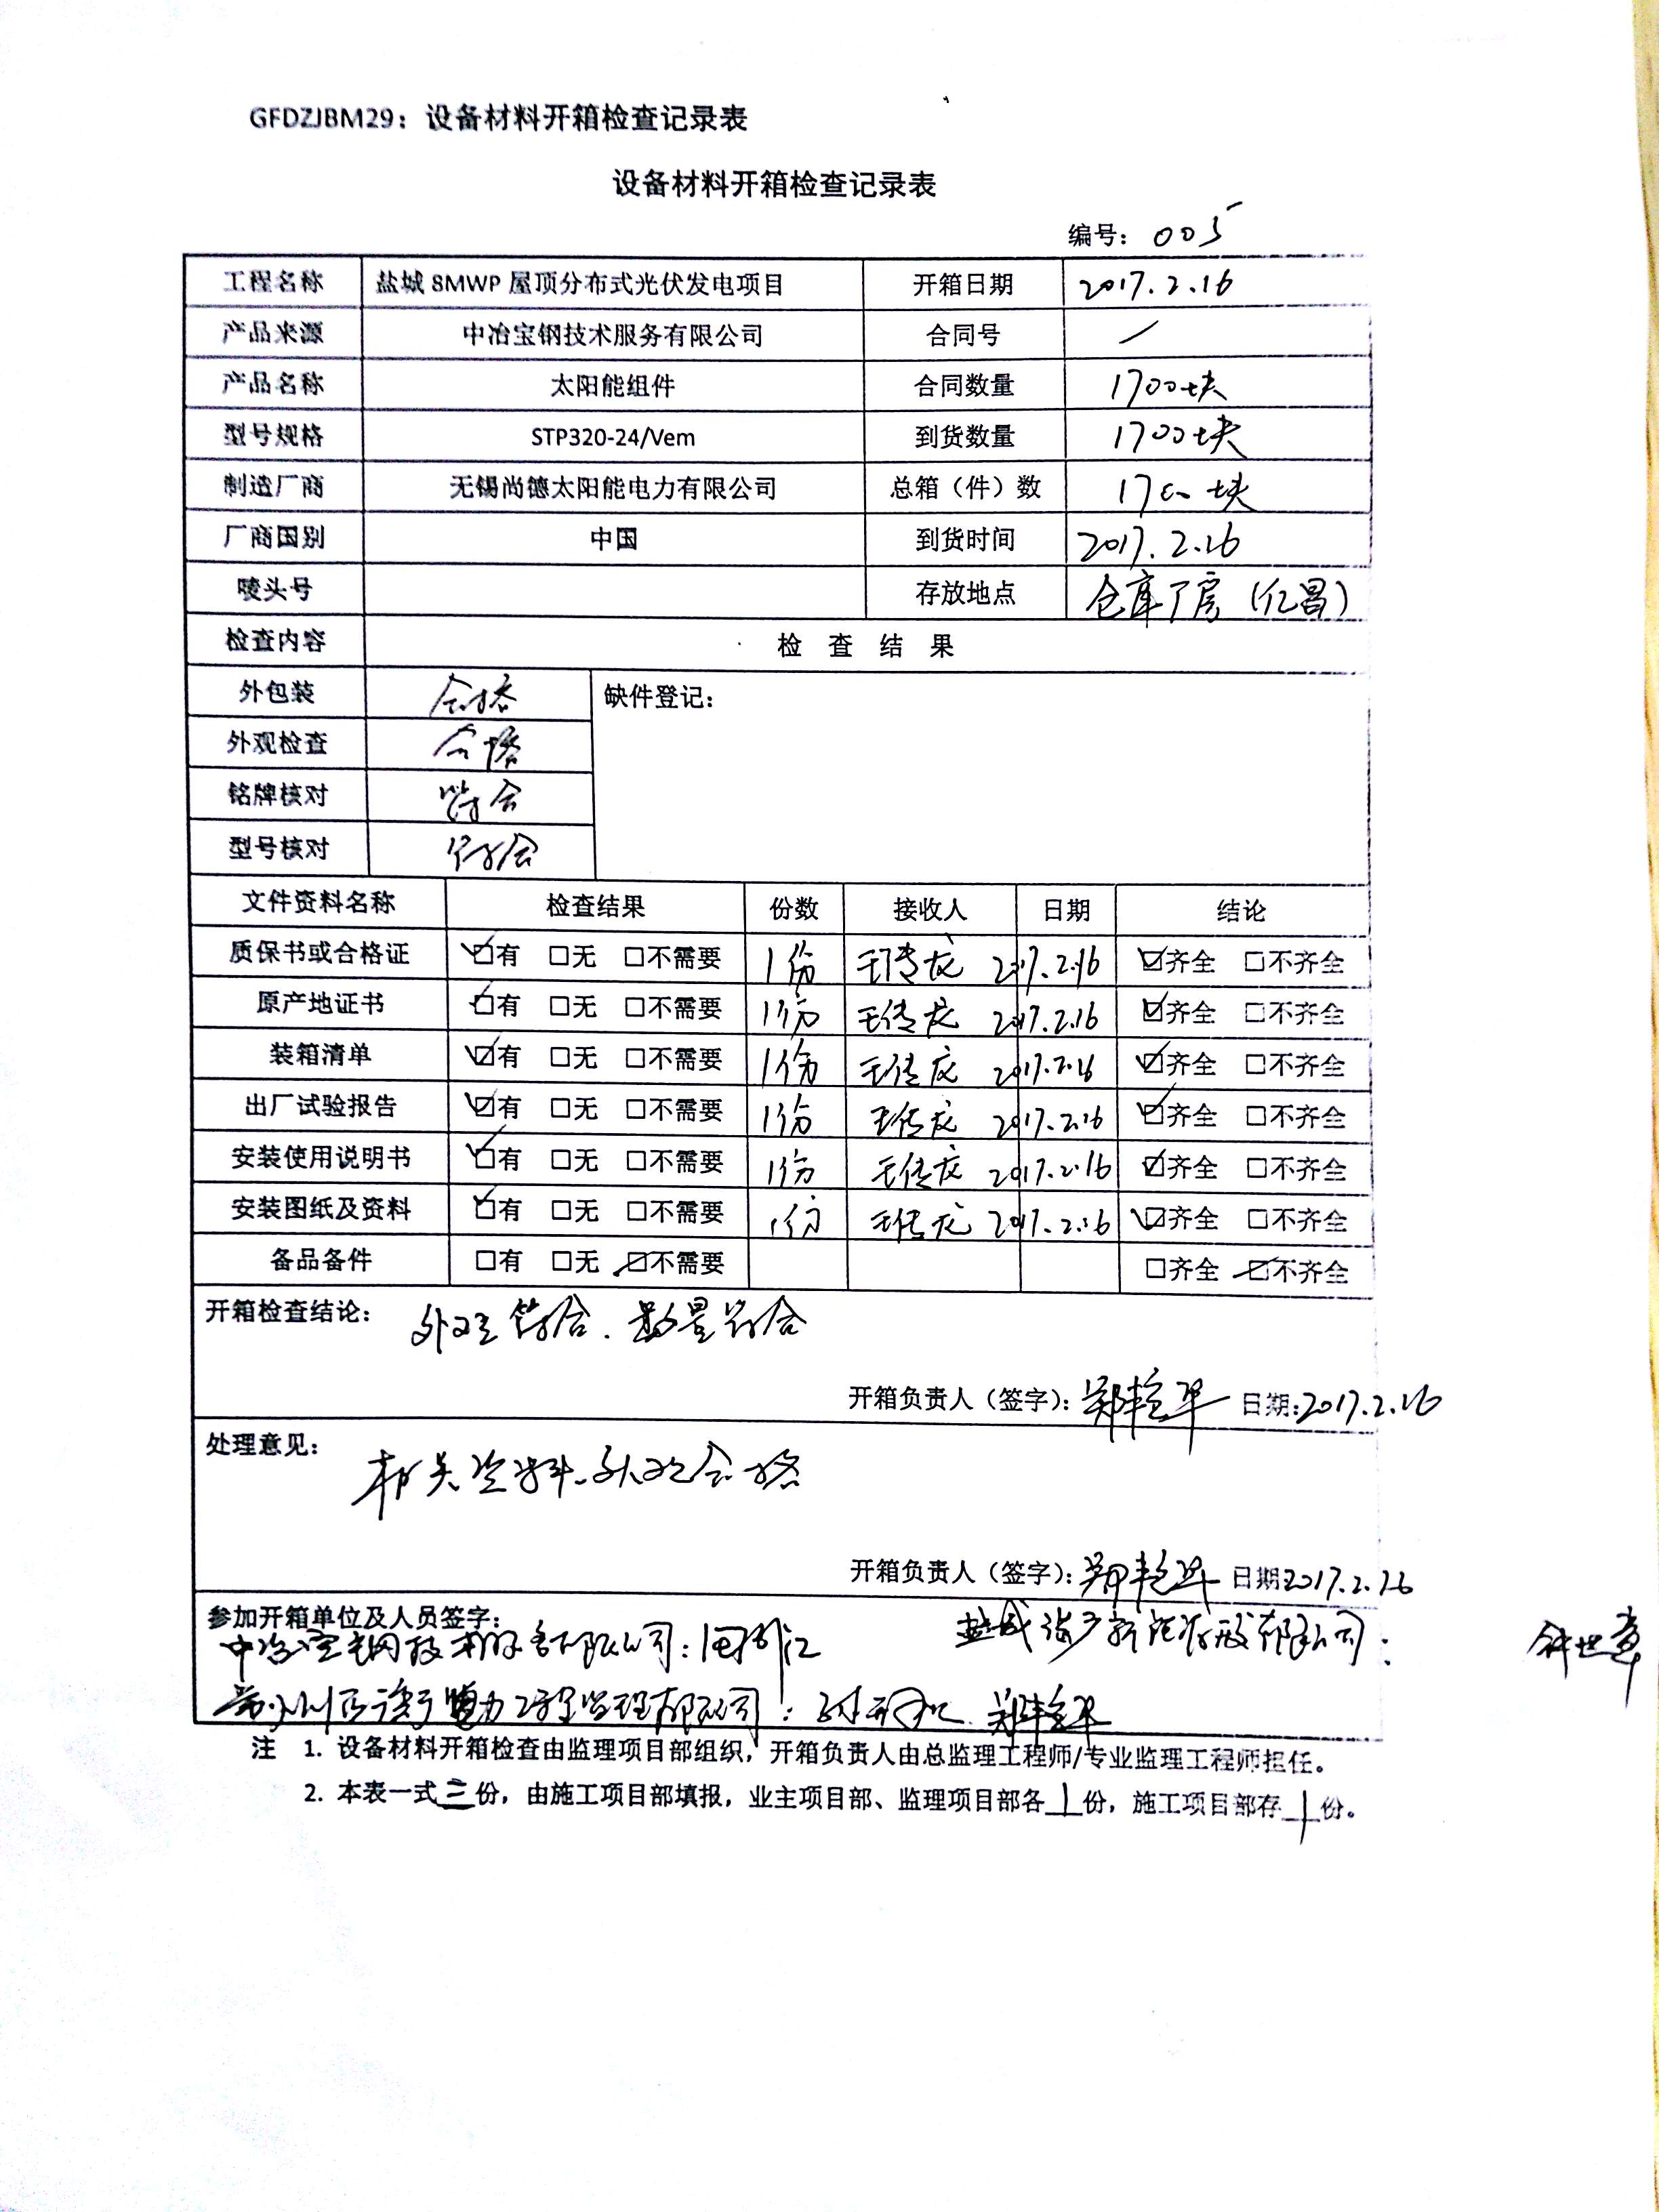 GFDZJBM29：设备材料开箱检查记录表
设备材料开箱检查记录表
编号：005
工程名称 盐城 8MWP 屋顶分布式光伏发电项目 开箱日期 2017.2.16
产品来源 中冶宝钢技术服务有限公司 合同号 /
产品名称 太阳能组件 合同数量 1700块
型号规格 STP320-24/Vem 到货数量 1700块
制造厂商 无锡尚德太阳能电力有限公司 总箱（件）数 1700块
厂商国别 中国 到货时间 2017.2.16
唛头号 存放地点 仓库厂房（亿昌）
检查内容 检 查 结 果
外包装 合格 缺件登记：
外观检查 合格
铭牌核对 符合
型号核对 符合
文件资料名称 检查结果 份数 接收人 日期 结论
质保书或合格证 ☑有 □无 □不需要 1份 王传龙 2017.2.16 ☑齐全 □不齐全
原产地证书 ☑有 □无 □不需要 1份 王传龙 2017.2.16 ☑齐全 □不齐全
装箱清单 ☑有 □无 □不需要 1份 王传龙 2017.2.16 ☑齐全 □不齐全
出厂试验报告 ☑有 □无 □不需要 1份 王传龙 2017.2.16 ☑齐全 □不齐全
安装使用说明书 ☑有 □无 □不需要 1份 王传龙 2017.2.16 ☑齐全 □不齐全
安装图纸及资料 ☑有 □无 □不需要 1份 王传龙 2017.2.16 ☑齐全 □不齐全
备品备件 □有 □无 ☑不需要 □齐全 ☑不齐全
开箱检查结论：外观符合.数量符合
开箱负责人（签字）：郑 日期：2017.2.16
处理意见：相关资料、外观合格
开箱负责人（签字）：郑 日期2017.2.16
参加开箱单位及人员签字：
中冶宝钢技术服务有限公司： 盐城 股份有限公司：
常州 电力工程监理有限公司： 郑
注 1. 设备材料开箱检查由监理项目部组织，开箱负责人由总监理工程师/专业监理工程师担任。
2. 本表一式三份，由施工项目部填报，业主项目部、监理项目部各1份，施工项目部存1份。